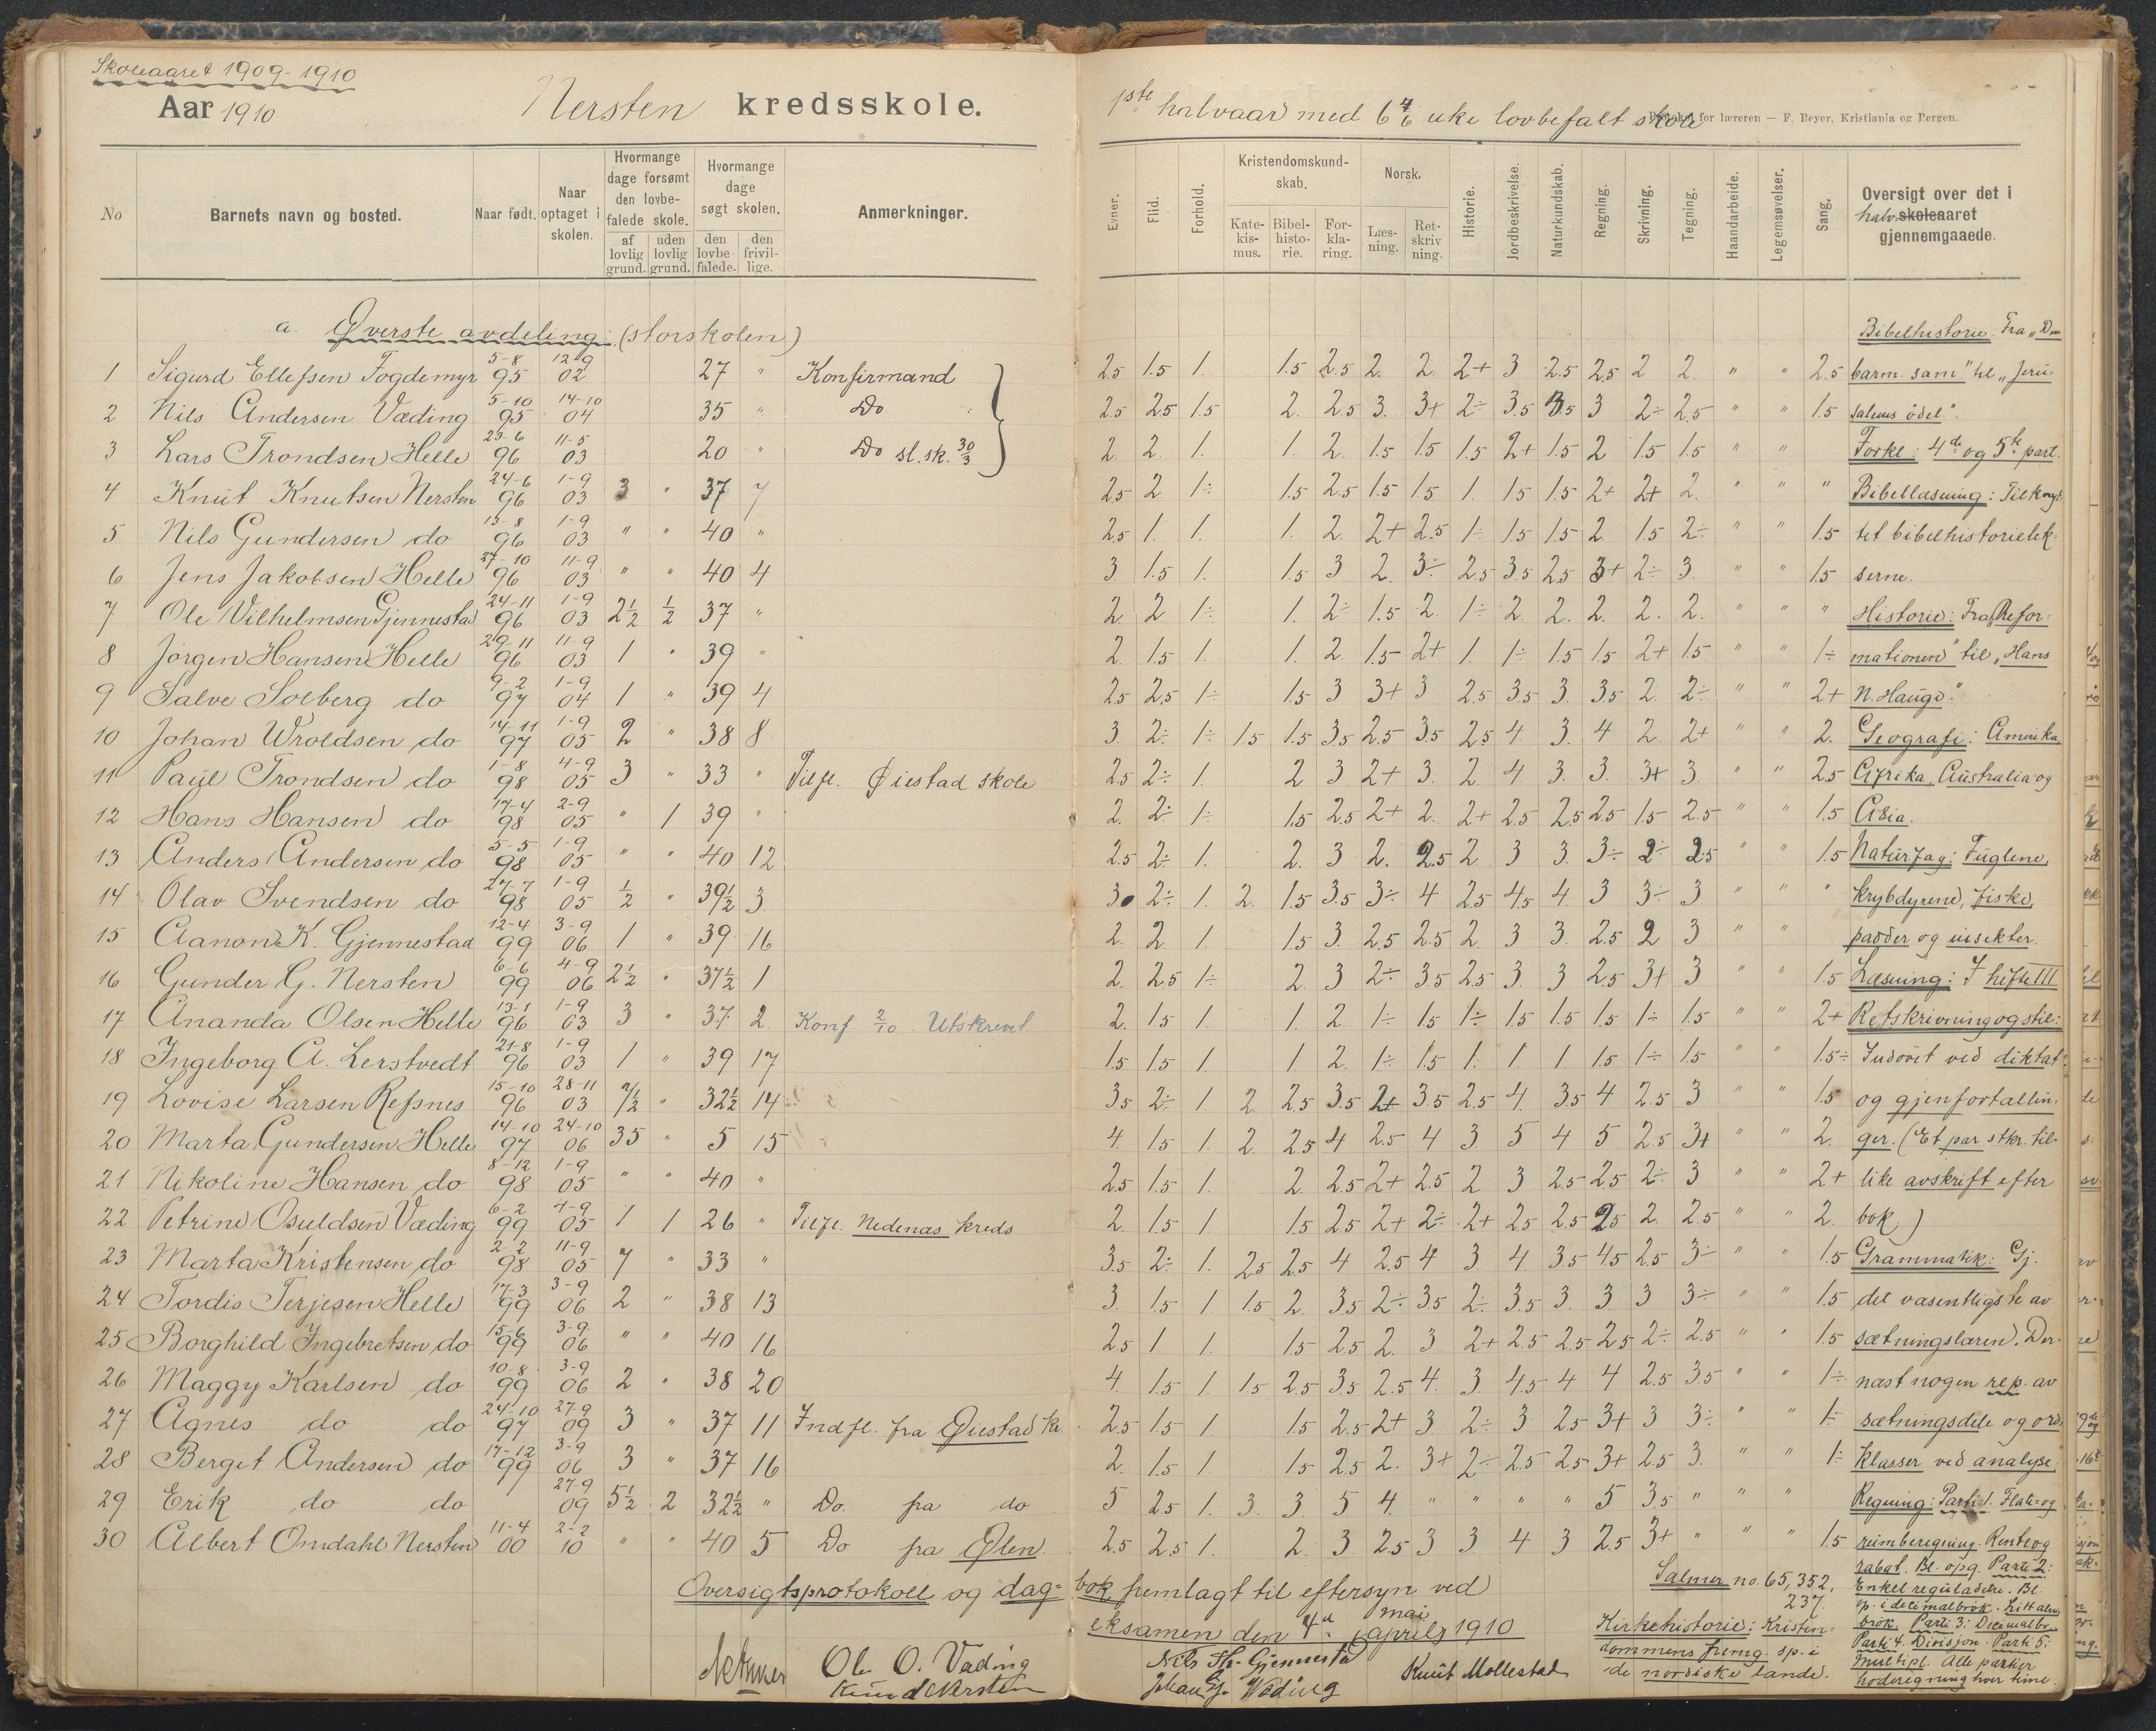 Skoleaaret 1909-1910
Aar 1910
Nersten kredsskole.
No
Barnets navn og bosted.
Naar født.
Naar optaget i skolen.
Hvormange dage forsømt den lovbefalede skole.
af lovlig grund.
uden lovlig grund.
Hvormange dage søgt skolen.
den lovbefalede.
den frivillige.
Anmerkninger.
a. Øverste avdeling: (storskolen)
1 Sigurd Ellefsen Fogdemyr 5-8 95 12-9 02 27 " Konfirmand
2 Nils Andersen Væding 5-10 95 14-10 04 35 " Do
3 Lars Trondsen Helle 23-6 96 11-5 03 20 " Do sl. sk. 30/3
4 Knut Knutsen Nersten 24-6 96 1-9 03 3 " 37 7
5 Nils Gundersen do 15-8 96 1-9 03 " " 40 "
6 Jens Jakobsen Helle 27-10 96 11-9 03 " " 40 4
7 Ole Vilhelmsen Gjennestad 24-11 96 1-9 03 2½ ½ 37 "
8 Jörgen Hansen Helle 29-11 96 11-9 03 1 " 39 "
9 Salve Solberg do 9-2 97 1-9 04 1 " 39 4
10 Johan Wroldsen do 14-11 97 1-9 05 2 " 38 8
11 Paul Trondsen do 1-8 98 4-9 05 3 " 33 " Tilfl. Øiestad skole
12 Hans Hansen do 17-4 98 2-9 05 " 1 39 "
13 Anders Andersen do 5-5 98 1-9 05 " " 40 12
14 Olav Svendsen do 27-7 98 1-9 05 ½ " 39½ 3
15 Aanon K. Gjennestad 12-4 99 3-9 06 1 " 39 16
16 Gunder G. Nersten 6-6 99 4-9 06 2½ " 37½ 1
17 Ananda Olsen Helle 13-1 96 1-9 03 3 " 37 2 Konf. 2/10 Utskrevet
18 Ingeborg A. Lerstvedt 21-8 96 1-9 03 1 " 39 17
19 Lovise Larsen Refsnes 15-10 96 28-11 03 7½ " 32½ 14
20 Marta Gundersen Helle 14-10 97 24-10 06 35 " 5 15
21 Nikoline Hansen do 8-12 98 1-9 05 " " 40 "
22 Petrine Osuldsen Væding 6-2 99 4-9 05 1 1 26 " Tilfl. Nedenæs kreds
23 Marta Kristensen do 2-2 98 11-9 05 7 " 33 "
24 Tordis Terjesen Helle 17-3 99 3-9 06 2 " 38 13
25 Borghild Ingebretsen do 15-6 99 3-9 06 " " 40 16
26 Maggy Karlsen do 10-8 99 3-9 06 2 " 38 20
27 Agnes do do 24-10 97 27-9 09 3 " 37 11 Indfl. fra Øiestad kr.
28 Berget Andersen do 17-12 99 3-9 06 3 " 37 16
29 Erik do do 27-9 09 5½ 2 32½ " Do. fra do
30 Albert Omdahl Nersten 11-4 00 2-2 10 " " 40 5 Do fra Ølen.
Oversigtsprotokoll og dag-
Ole O. Væding
Knud Nersten
1ste halvaar med 6 4/6 uke lovbefalt skole
for læreren — F. Beyer, Kristiania og Bergen.
Evner.
Flid.
Forhold.
Kristendomskundskab.
Katekismus.
Bibelhistorie.
Forklaring.
Norsk.
Læsning.
Retskrivning.
Historie.
Jordbeskrivelse.
Naturkundskab.
Regning.
Skrivning.
Tegning.
Haandarbeide.
Legemsøvelser.
Sang.
Oversigt over det i halvskoleaaret gjennemgaaede.
2.5 1.5 1. 1.5 2.5 2. 2 2+ 3 2.5 2.5 2 2. " " 2.5
2.5 2.5 1.5 2. 2.5 3. 3+ 2÷ 3.5 3.5 3 2÷ 2.5 " " 1.5
2. 2. 1. 1. 2. 1.5 1.5 1.5 2+ 1.5 2 1.5 1.5 " "
2.5 2 1÷ 1.5 2.5 1.5 1.5 1. 1.5 1.5 2+ 2+ 2. " " "
2.5 1. 1. 1. 2. 2+ 2.5 1÷ 1.5 1.5 2. 1.5 2÷ " " 1.5
3. 1.5 1. 1.5 3 2. 3÷ 2.5 3.5 2.5 3+ 2÷ 3. " " 1.5
2. 2 1÷ 1. 2÷ 1.5 2. 1÷ 2. 2. 2. 2. 2. " " "
2. 1.5 1. 1. 2. 1.5 2+ 1. 1÷ 1.5 1.5 2+ 1.5 " " 1÷
2.5 2.5 1÷ 1.5 3 3+ 3 2.5 3.5 3. 3.5 2. 2÷ " " 2+
3. 2÷ 1÷ 1.5 1.5 3.5 2.5 3.5 2.5 4 3. 4 2. 2+ " " 2.
2.5 2÷ 1. 2 3 2+ 3. 2. 4 3. 3. 3+ 3 " " 2.5
2. 2÷ 1÷ 1.5 2.5 2+ 2. 2+ 2.5 2.5 2.5 1.5 2.5 " " 1.5
2.5 2÷ 1. 2. 3 2. 2.5 2 3 3. 3÷ 2÷ 2.5 " " 1.5
3. 2÷ 1. 2. 1.5 3.5 3÷ 4 2.5 4.5 4. 3 3÷ 3 " " "
2. 2 1. 1.5 3. 2.5 2.5 2. 3 3. 2.5 2 3 " "
2. 2.5 1÷ 2. 3 2÷ 3.5 2.5 3. 3 2.5 3+ 3 " " 1.5
2. 1.5 1. 1. 2. 1÷ 1.5 1÷ 1.5 1.5 1.5 1÷ 1.5 " " 2+
1.5 1.5 1. 1 2. 1÷ 1.5 1. 1. 1 1.5 1÷ 1.5 " " 1.5÷
3.5 2÷ 1 2 2.5 3.5 2+ 3.5 2.5 4. 3.5 4 2.5 3 " " 1.5
4. 1.5 1. 2. 2.5 4 2.5 4 3 5 4 5 2.5 3+ " " 2.
2.5 1.5 1. 2. 2.5 2+ 2.5 2. 3 2.5 2.5 2÷ 3 " " 2+
2. 1.5 1. 1.5 2.5 2+ 2÷ 2+ 2.5 2.5 2.5 2. 2.5 " " 2.
3.5 2÷ 1. 2.5 2.5 4 2.5 4 3 4. 3.5 4.5 2.5 3÷ " " 1.5
3. 1.5 1. 1.5 2. 3.5 2÷ 3.5 2÷ 3.5 3. 3. 3 3÷ " " 1.5
2.5 1 1. 1.5 2.5 2. 3 2+ 2.5 2.5 2.5 2÷ 2.5 " " 1.5
4. 1.5 1. 1.5 2.5 3.5 2.5 4. 3. 4.5 4 4 2.5 3.5 " " 1÷
2.5 1.5 1. 1.5 2.5 2+ 3 2÷ 3 2.5 3+ 3 3÷ " " 1÷
2. 1.5 1. 1.5 2.5 2. 3+ 2÷ 2.5 2.5 3+ 2.5 3. " " 1÷
5 2.5 1. 3 3. 5 4. " " " " 5 3.5 " " " "
2.5 2.5 1. 2. 3 2.5 3 3. 4 3 2.5 3+ " " " 1.5
Bibelhistorie: Fra „Den
barm. sam" til „Jeru-
salems ödel.".
Forkl: 4de og 5te part.
Bibellæsning: Tilknyt-
tet bibelhistorielek-
serne.
Historie: Fra „Refor-
mationen" til „Hans
N. Hauge."
Geografi: Amerika
Afrika, Australia og
Asia.
Naturfag: Fuglene,
krybdyrene, fiske,
padder og insekter.
Læsning: I hefte III
Retskrivning og stil:
Indövet ved diktat
og gjenfortællin-
ger. (Et par stkr. til-
like avskrift efter
bok.)
Grammatik: Gj.
det væsentligste av
sætningslæren. Der-
næst nogen rep. av
sætningsdele og ord-
klasser ved analyse.
Regning: Parti 1. Flate- og
rumberegning. Rente og
rabat. Bl. opg. Parti 2:
Enkel reguladetri. Bl.
op. i decimalbrök. Litt alm.
brök. Parti 3: Decimalbr.
Parti 4. Divisjon. Parti 5:
Multipl. Alle partier
hoderegning hver time.
bok fremlagt til eftersyn ved
eksamen den 4de mai (april) 1910
Salmer no. 65, 352,
237
Kirkehistorie: Kristen-
dommens fremg. sp. i
de nordiske lande.
Nils Gjennestad
Knut Mollestad
Johan Væding